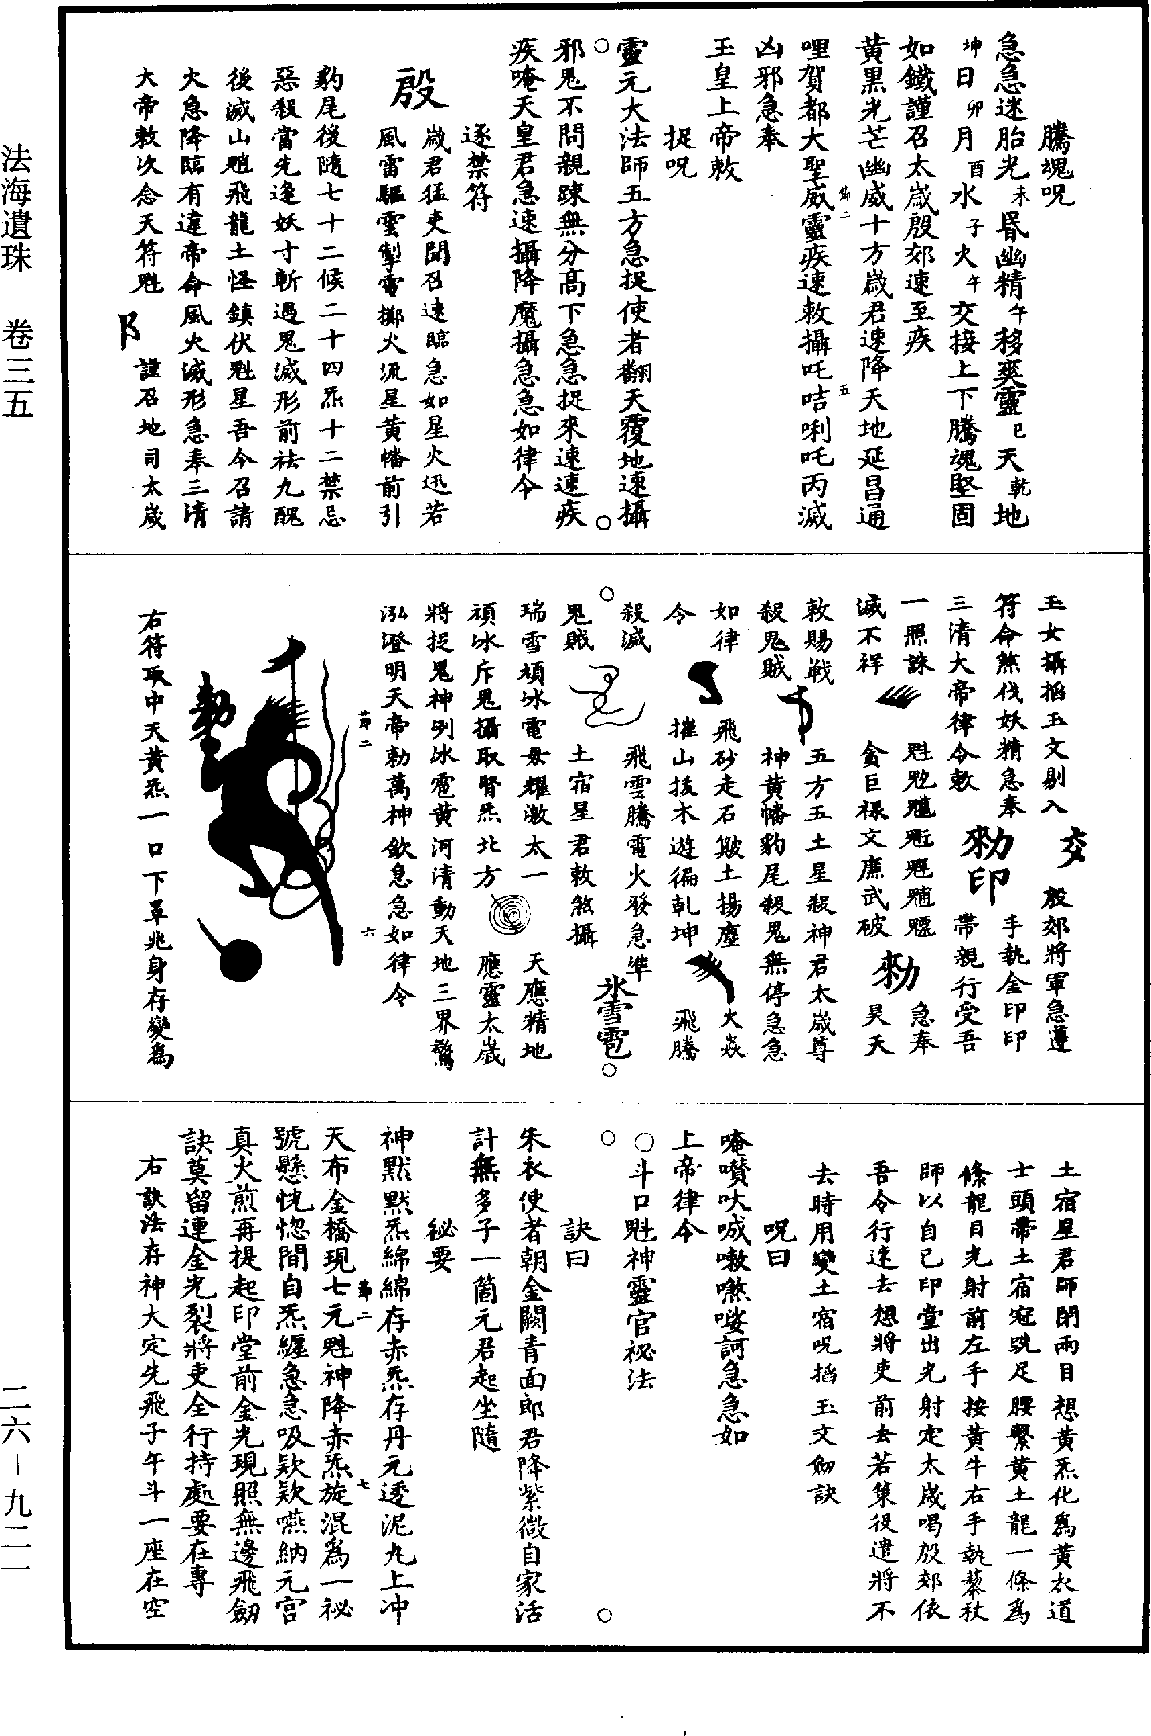 騰魂呪
急急迷胎光未晷幽精午移爽靈巳天乾地
坤日卯月酉水子火午交接上下騰魂堅固
如鐵謹召太歲殷郊速至疾
黃黑光芒幽威十方歲君速降天地延昌通
哩賀都大聖威靈疾速敕攝吒咭唎吒丙滅
凶邪急奉
玉皇上帝敕
捉呪
靈元大法師五方急捉使者翻天覆地速攝
邪鬼不問親踈無分高下急急捉來速速疾
疾唵天皇君急速攝降魔攝急急如律令
逐禁符
殷
歲君猛吏開召速臨急如星火迅若
風雷驅雲掣電擲火流星黃幡前引
豹尾後隨七十二候二十四炁十二禁忌
惡殺當先逢妖寸斬遇鬼滅形前祛九醜
後滅山魈飛龍土怪鎮伏魁星吾今召請
火急降臨有違帝命風火滅形急奉三清
大帝敕次念天符魁
謹召地司太歲
玉女攝招玉文剔入
符命煞伐妖精急奉
三清大帝律令敕
一照誅
滅不祥
交
殷郊將軍急遵
手執金印印
帶親行受吾
勑印
貪巨祿文廉武破
勑
急奉
昊天
敕賜戰
殺鬼賊
五方五土星殺神君太歲尊
神黃幡豹尾殺鬼無停急急
如律
令
飛砂走石皷土揚塵
摧山拔木遊徧乾坤
火焱
飛騰
殺滅
鬼賊
飛雲騰電火發急準
土宿星君敕煞攝
冰雪雹
瑞雪頑冰電毋耀激太一
頑冰斥鬼攝取腎炁北方
天應精地
應靈太歲
將捉鬼神冽冰雹黃河清動天地三界驚
泓澄明天帝勑萬神欽急急如律令
勑
右符取中天黃炁一口下單兆身存變為
土宿星君師閉兩目想黃炁化為黃衣道
士頭帶土宿冠跣足腰繫黃土龍一條為
條龍目光射前左手按黃牛右手執藜杖
師以自己印堂出光射定太歲喝殷郊依
吾令行速去想將吏前去若策役遣將不
去時用變土宿呪掐玉文劒訣
呪曰
唵囋吠喊嗷㘓㗿訶急急如
上帝律令
○斗口魁神靈官祕法
訣曰
朱衣使者朝金闕青面郎君降紫微自家活
計無多子一箇元君起坐隨
祕要
神默默炁綿綿存赤炁存丹元透泥丸上冲
天布金橋現七元魁神降赤炁旋混為一祕
號懸恍惚間自炁纏急急吸欵欵嚥納元宮
真火煎再提起印堂前金光現照無邊飛劒
訣莫留連金光裂將吏全行持處要在專
右訣法存神大定先飛子午斗一座在空
法海遺珠 卷三五
二六－九二一